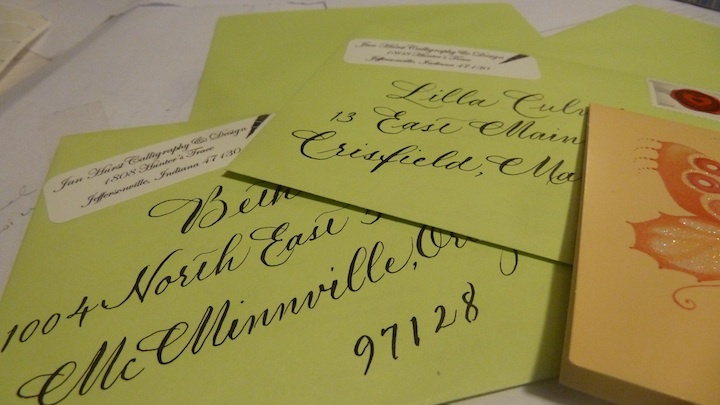 Jan Hurst Calligraphy & Design
1808 Hunter's Trace
Jeffersonville, Indiana 47130
Lilla
13 East Main
Crisfield,
Jan Hurst Calligraphy & Design
1808 Hunter's Trace
Jeffersonville, Indiana 47130
Beth
1004 North East
McMinnville,
97128